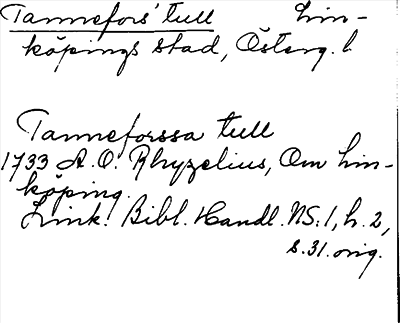 Tannefors' tull Lin-
köpings stad, Österg. l
Tanneforssa tull
1733 A.O. Rhyzelius, Om Lin-
köping.
Link. Bibl. Handl. NS. 1, h. 2,
s. 31. orig.